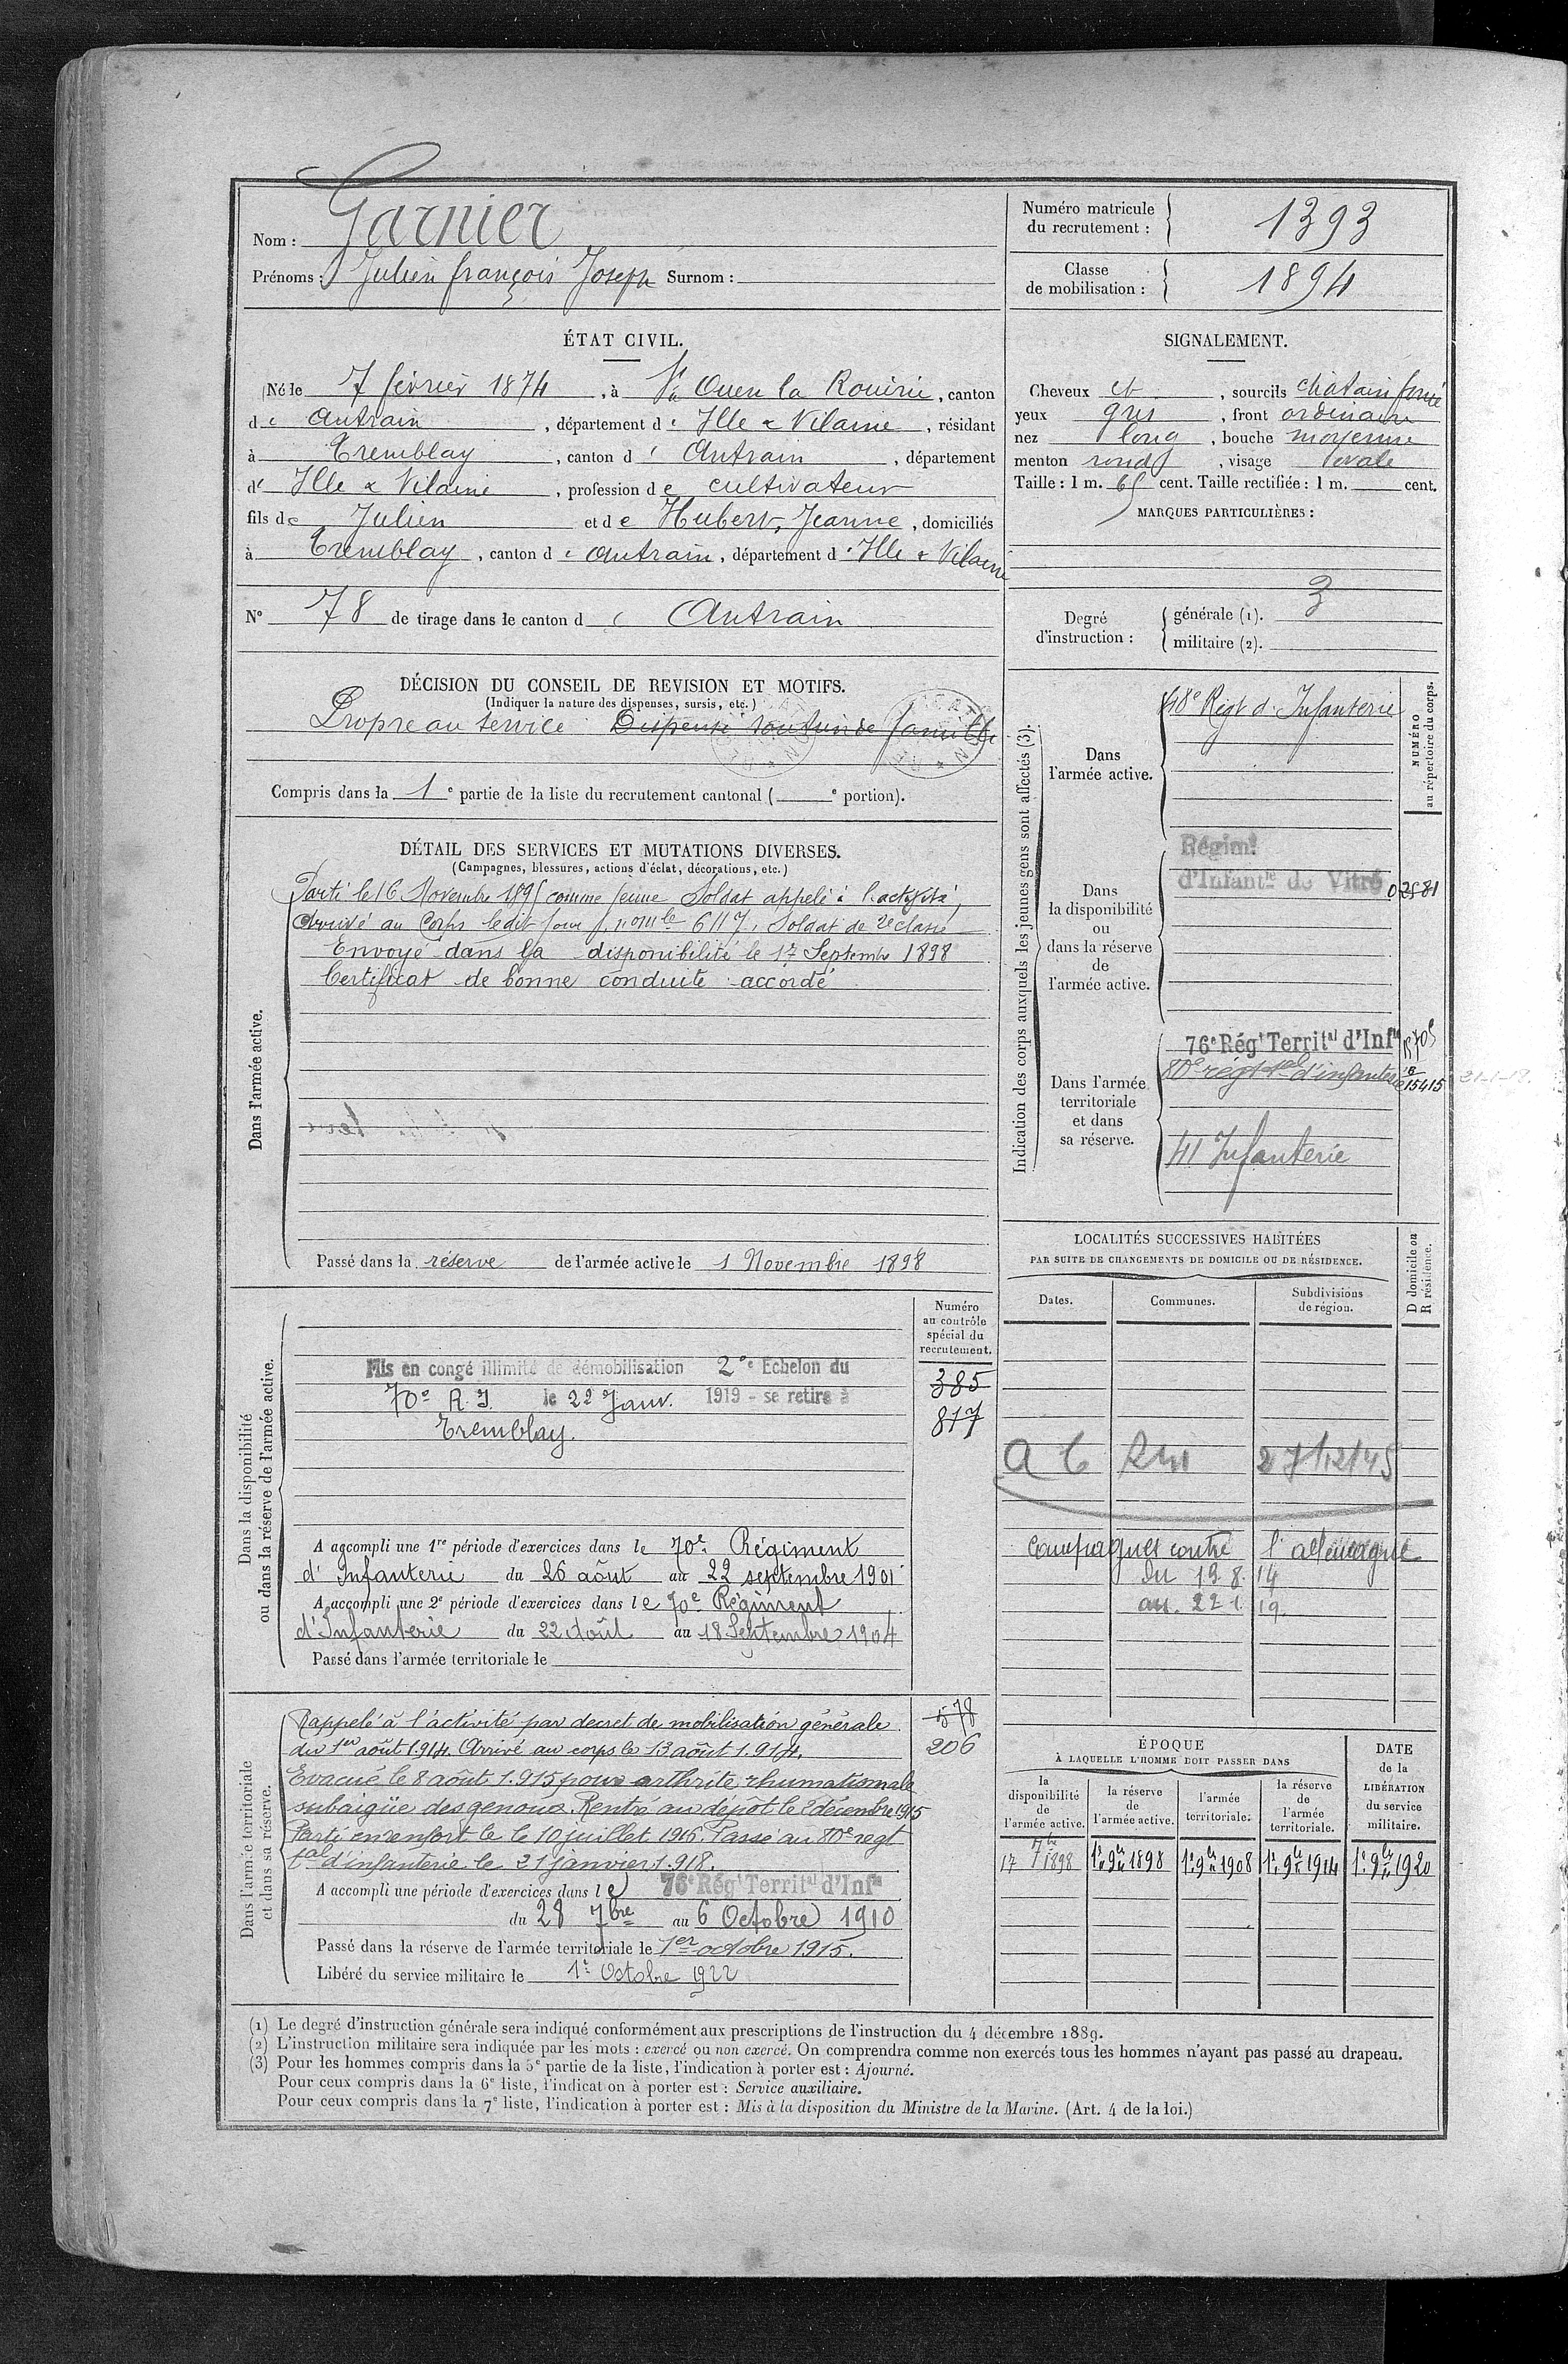 Nom : Garnier
Prénoms : Julien françois Joseph Surnom :
Numéro matricule du recrutement : 1393
Classe de mobilisation : 1894
ÉTAT CIVIL.
Né le 7 février 1874, à St Ouen la Rouirie, canton
de Antrain, département d'Ille & Vilaine, résidant
à Tremblay, canton d' Antrain, département
d' Ille & Vilaine, profession de cultivateur
fils de Julien et de Hubert, Jeanne, domiciliés
à Tremblay, canton d' Antrain, département d'Ille & Vilaine
N° 78 de tirage dans le canton d' Antrain
SIGNALEMENT.
Cheveux et, sourcils chatain foncé
yeux gris, front ordinaire
nez long, bouche moyenne
menton rond, visage ovale
Taille : 1 m. 65 cent. Taille rectifiée : 1 m. cent.
MARQUES PARTICULIÈRES :
Degré d'instruction :
générale (1). 3
militaire (2).
DÉCISION DU CONSEIL DE REVISION ET MOTIFS.
(Indiquer la nature des dispenses, sursis, etc.)
Propre au service Dispensé soutien de famille
Compris dans la 1e partie de la liste du recrutement cantonal ( e portion).
DÉTAIL DES SERVICES ET MUTATIONS DIVERSES.
(Campagnes, blessures, actions d'éclat, décorations, etc.)
Dans l'armée active.
Parti le 16 Novembre 1895 comme jeune Soldat appelé à l'activité,
Arrivé au Corps ledit jour, n° mle 6117, Soldat de 2e classe
Envoyé dans la disponibilité le 17 Septembre 1898
Certificat de bonne conduite accordé
Passé dans la réserve de l'armée active le 1 Novembre 1898
Indication des corps auxquels les jeunes gens sont affectés (3).
NUMÉRO au répertoire du corps.
Dans l'armée active.
48e Régt d'Infanterie
Dans la disponibilité ou dans la réserve de l'armée active.
Régimt
d'Infantie de Vitré
Dans l'armée territoriale et dans sa réserve.
76e Régt Territal d'Infie
80e régt tal d'infanterie 15415
21-1-18.
41 Infanterie
LOCALITÉS SUCCESSIVES HABITÉES
PAR SUITE DE CHANGEMENTS DE DOMICILE OU DE RÉSIDENCE.
Dates. Communes. Subdivisions de région. D domicile ou R résidence.
27/12/45
Campagnes contre l'allemagne
du 13 8. 14
au. 22 1. 19.
Dans la disponibilité ou dans la réserve de l'armée active.
Numéro au contrôle spécial du recrutement.
385
817
Mis en congé illimité de démobilisation 2e Echelon du
70e R. I. le 22 Janv. 1919 - se retire à
Tremblay.
A accompli une 1re période d'exercices dans le 70e Régiment
d' Infanterie du 26 août au 22 septembre 1901
A accompli une 2e période d'exercices dans le 70e Régiment
d'Infanterie du 22 Août au 18 Septembre 1904
Passé dans l'armée territoriale le
Dans l'armée territoriale et dans sa réserve.
578
206
Rappelé à l'activité par decret de mobilisation générale
du 1er août 1.914. Arrivé au corps le 13 août 1.914.
Evacué le 8 août 1.915 pour arthrite rhumatismale
subaigüe des genoux. Rentré au dépôt le 2 décembre 1915
Parti en renfort le le 10 juillet 1916. Passé au 80e regt
tal d'infanterie le 21 janvier 1.918.
A accompli une période d'exercices dans le 76e Régt Territal d'Infie
du 28 7bre au 6 Octobre 1910
Passé dans la réserve de l'armée territoriale le 1er octobre 1915.
Libéré du service militaire le 1er Octobre 1922
ÉPOQUE
À LAQUELLE L'HOMME DOIT PASSER DANS
la disponibilité de l'armée active. la réserve de l'armée active. l'armée territoriale. la réserve de l'armée territoriale. DATE de la LIBÉRATION du service militaire.
17 7bre 1898 1er 9bre 1898 1er 9bre 1908 1er 9bre 1914 1er 9bre 1920
(1) Le degré d'instruction générale sera indiqué conformément aux prescriptions de l'instruction du 4 décembre 1889.
(2) L'instruction militaire sera indiquée par les mots : exercé ou non exercé. On comprendra comme non exercés tous les hommes n'ayant pas passé au drapeau.
(3) Pour les hommes compris dans la 5e partie de la liste, l'indication à porter est : Ajourné.
Pour ceux compris dans la 6e liste, l'indication à porter est : Service auxiliaire.
Pour ceux compris dans la 7e liste, l'indication à porter est : Mis à la disposition du Ministre de la Marine. (Art. 4 de la loi.)